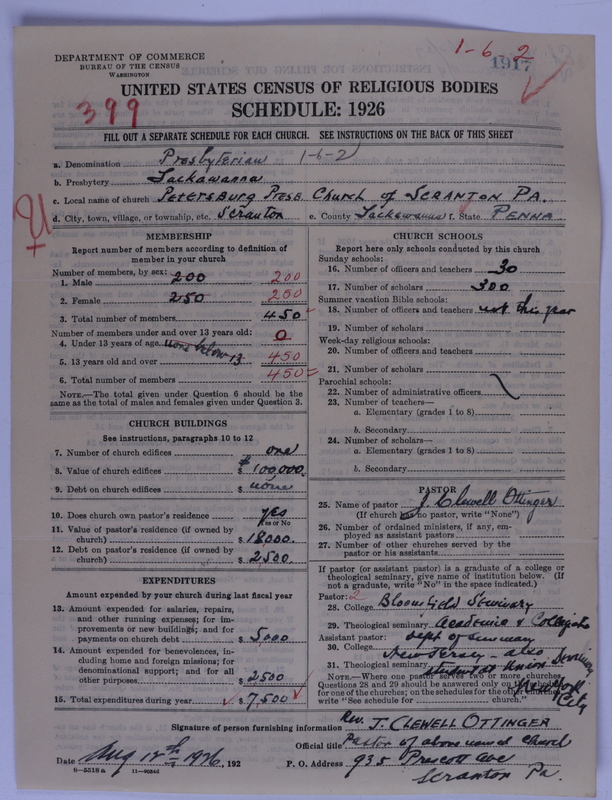 1-6-2
1917
DEPARTMENT OF COMMERCE
BUREAU OF THE CENSUS
WASHINGTON
UNITED STATES CENSUS OF RELIGIOUS BODIES
399
SCHEDULE: 1926
FILL OUT A SEPARATE SCHEDULE FOR EACH CHURCH. SEE INSTRUCTIONS ON THE BACK OF THIS SHEET
a. Denomination Presbyterian 1-6-2
b. Presbytery Lackawanna
c. Local name of church PETERSBURG PRESB. Church of SCRANTON PA.
d. City, town, village, or township, etc. Scranton e. County Lackawanna f. State PENNA
U
MEMBERSHIP
Report number of members according to definition of member in your church
Number of members, by sex:
1. Male 200 200
2. Female 250 250
3. Total number of members 450
Number of members under and over 13 years old:
4. Under 13 years of age none below 13 0
5. 13 years old and over 450
6. Total number of members 450
NOTE.—The total given under Question 6 should be the same as the total of males and females given under Question 3.
CHURCH BUILDINGS
See instructions, paragraphs 10 to 12
7. Number of church edifices one
8. Value of church edifices $ 100,000.
9. Debt on church edifices $ none
10. Does church own pastor's residence yes
Yes or No
11. Value of pastor's residence (if owned by church) $ 18000.
12. Debt on pastor's residence (if owned by church) $ 2500.
EXPENDITURES
Amount expended by your church during last fiscal year
13. Amount expended for salaries, repairs, and other running expenses; for improvements or new buildings; and for payments on church debt $ 5,000
14. Amount expended for benevolences, including home and foreign missions; for denominational support; and for all other purposes $ 2500
15. Total expenditures during year $ 7,500
CHURCH SCHOOLS
Report here only schools conducted by this church
Sunday schools:
16. Number of officers and teachers 30
17. Number of scholars 300
Summer vacation Bible schools:
18. Number of officers and teachers not this year
19. Number of scholars
Week-day religious schools:
20. Number of officers and teachers
21. Number of scholars
Parochial schools:
22. Number of administrative officers
23. Number of teachers—
a. Elementary (grades 1 to 8)
b. Secondary
24. Number of scholars—
a. Elementary (grades 1 to 8)
b. Secondary
PASTOR
25. Name of pastor J. Clewell Ottinger
(If church has no pastor, write "None")
26. Number of ordained ministers, if any, employed as assistant pastors
27. Number of other churches served by the pastor or his assistants
If pastor (or assistant pastor) is a graduate of a college or theological seminary, give name of institution below. (If not a graduate, write "No" in the space indicated.)
Pastor: 2
28. College Bloomfield Seminary
29. Theological seminary Academic & Collegiate
Assistant pastor: Dept of seminary
30. College New Jersey - also
31. Theological seminary student at Union Seminary
New York City
NOTE.—Where one pastor serves two or more churches, Questions 28 and 29 should be answered only on the schedule for one of the churches; on the schedules for the other churches write "See schedule for church."
Signature of person furnishing information Rev. J. CLEWELL OTTINGER
Official title Pastor of above named church
Date Aug 12th 1926, 192 P. O. Address 935 Prescott Ave
6-5318a 11-9034d Scranton Pa.